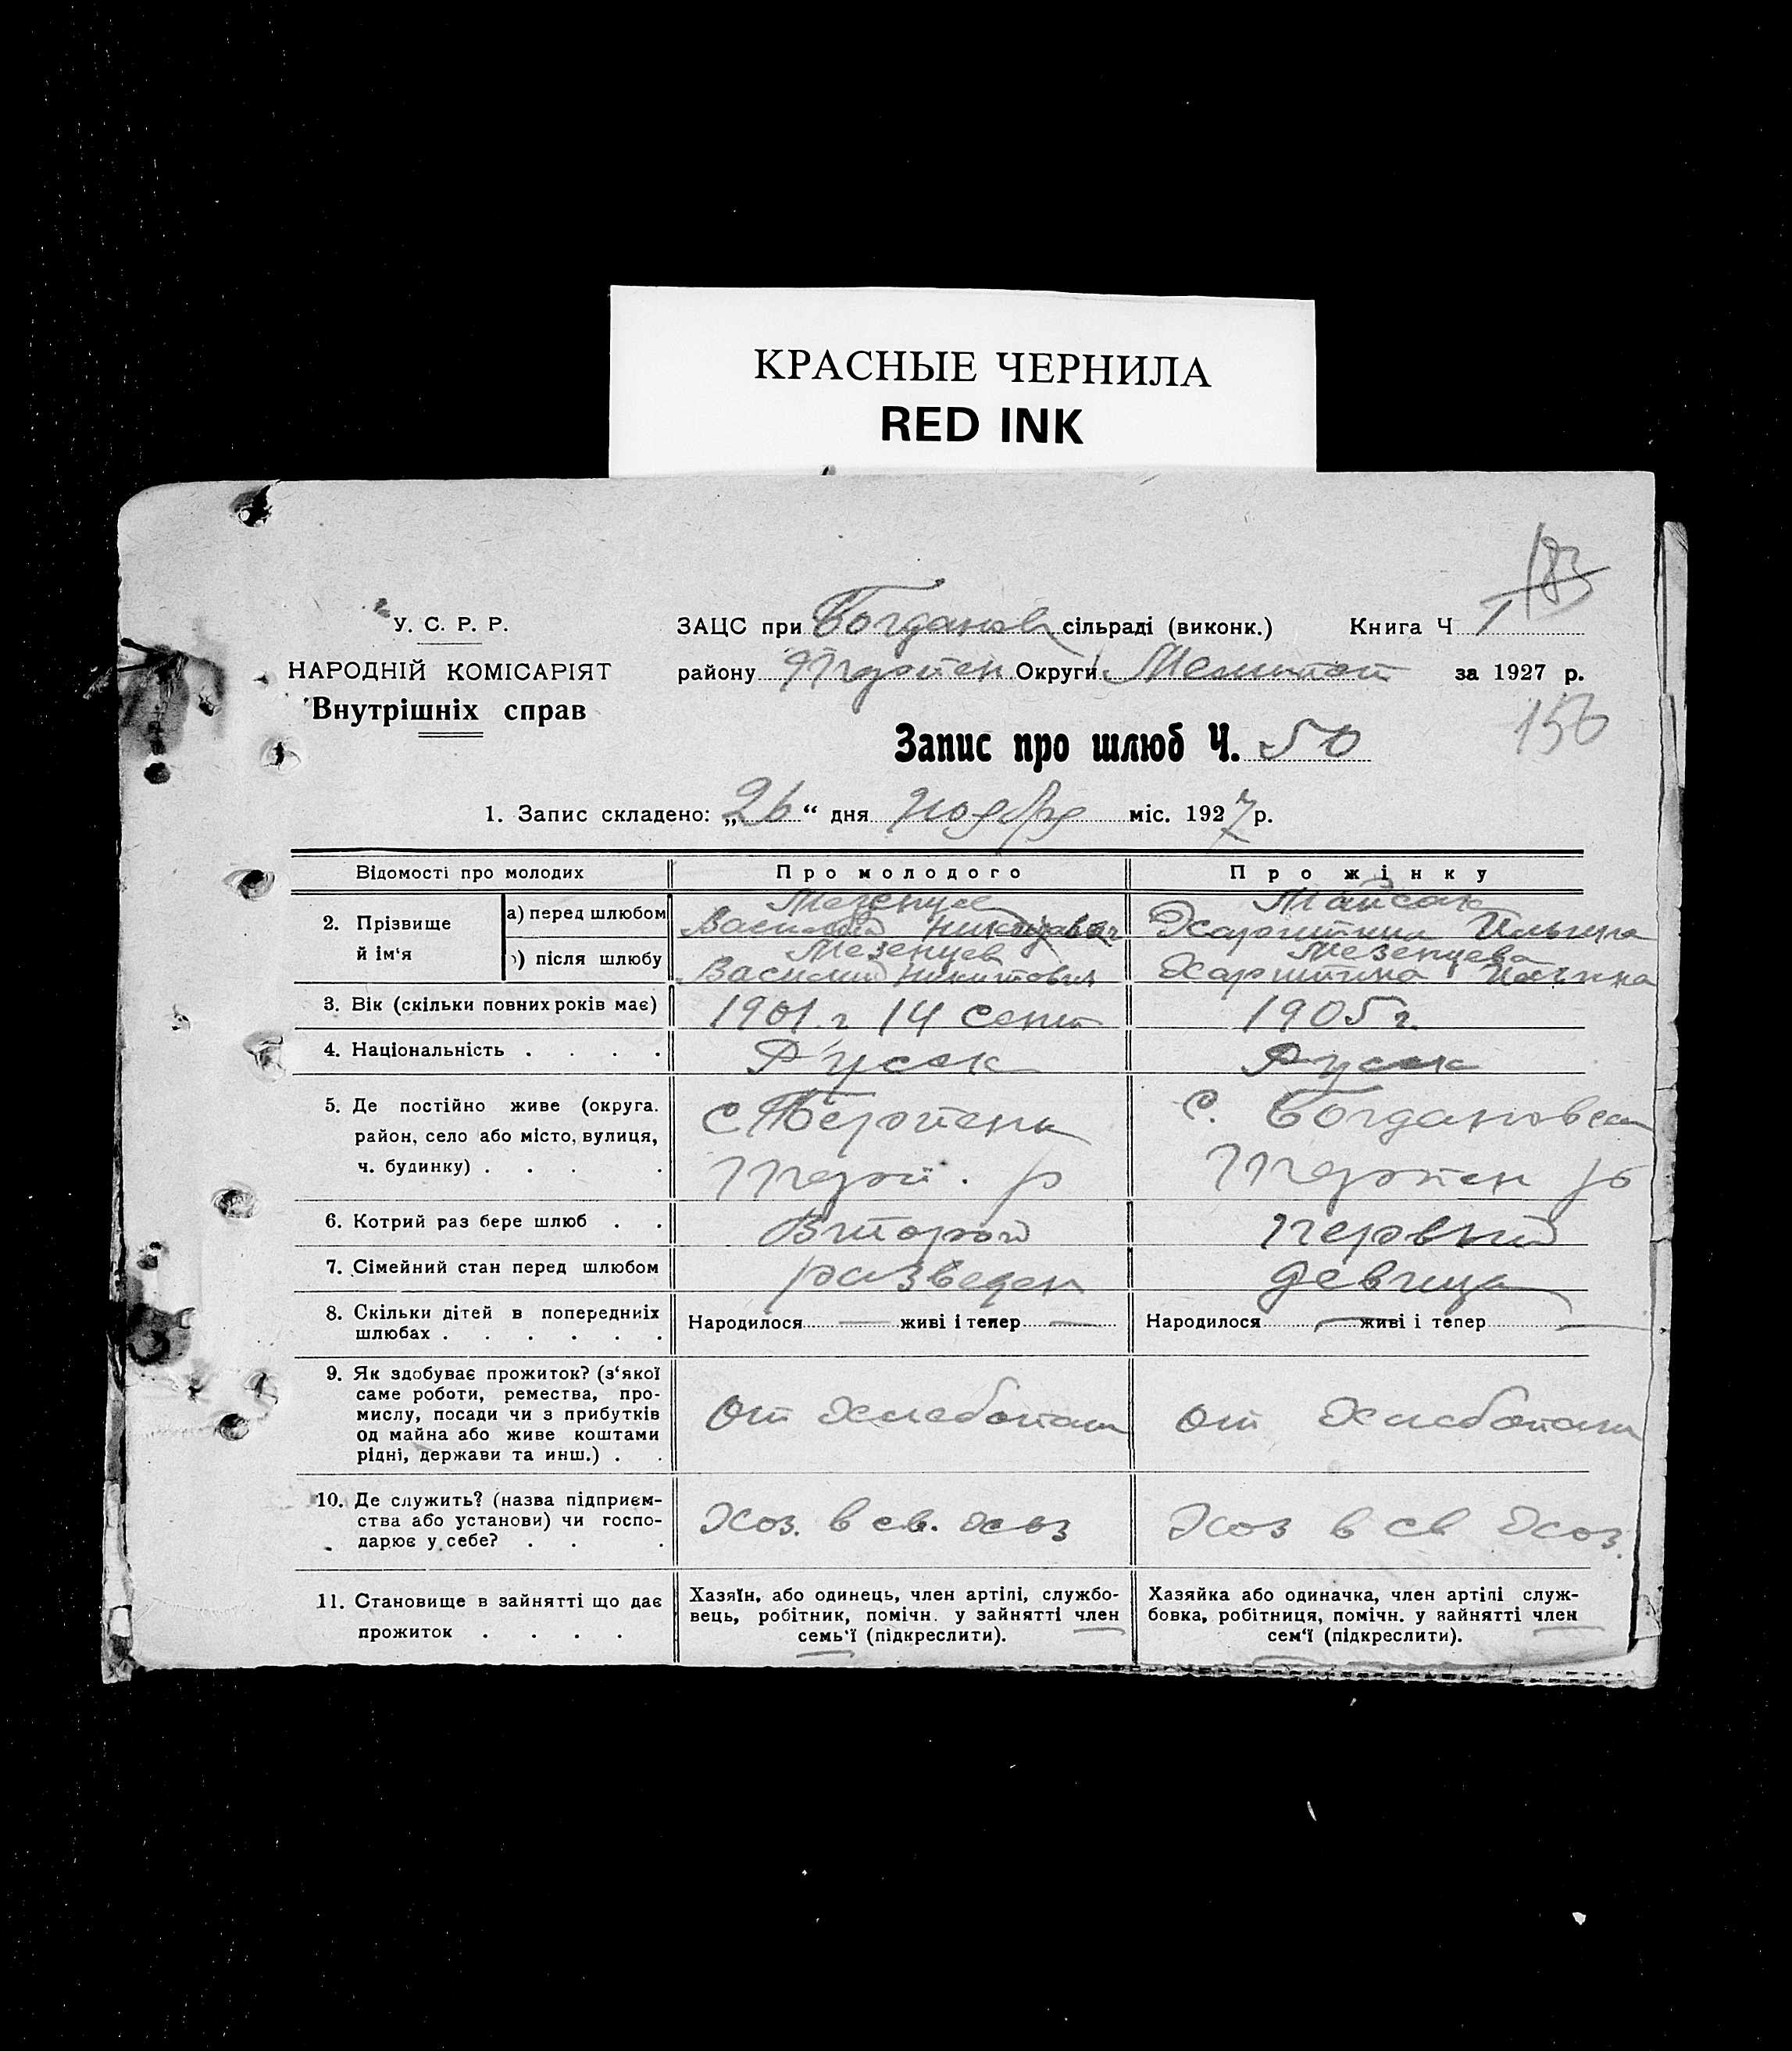 КРАСНЫЕ ЧЕРНИЛА
RED INK
183
У. С. Р. Р.
НАРОДНІЙ КОМІСАРІЯТ
Внутрішніх справ
ЗАЦС при Богданов сільраді (виконк.) Книга Ч 1
району Терпен Округи Мелитоп за 1927 р.
150
Запис про шлюб Ч. 50
1. Запис складено: „26“ дня ноября міс. 1927 р.
Відомості про молодих Про молодого Про жінку
2. Прізвище й ім‘я
а) перед шлюбом Мезенцев Василий Харитина Ильина
) після шлюбу Мезенцев Василий Никитович Мезенцева Харитина Ильина
3. Вік (скільки повних років має) 1901 г 14 сент 1905 г.
4. Національність . . . . Русск Русск
5. Де постійно живе (округа.
район, село або місто, вулиця,
ч. будинку) . . . .
с Терпени
Терп. р
с. Богдановка
Терпен р
6. Котрий раз бере шлюб . . Второй Первый
7. Сімейний стан перед шлюбом разведен девица
8. Скільки дітей в попередніх
шлюбах . . . . . .
Народилося — живі і тепер — Народилося — живі і тепер —
9. Як здобуває прожиток? (з‘якої
саме роботи, ремества, про-
мислу, посади чи з прибутків
од майна або живе коштами
рідні, держави та инш.) . .
от хлебопаш от хлебопаш
10. Де служить? (назва підприєм-
ства або установи) чи госпо-
дарює у себе? . . .
Хоз. в св. хоз Хоз в св хоз.
11. Становище в зайнятті що дає
прожиток . . . .
Хазяїн, або одинець, член артілі, службо-
вець, робітник, помічн. у зайнятті член
семь‘ї (підкреслити).
Хазяйка або одиначка, член артілі служ-
бовка, робітниця, помічн. у зайнятті член
сем‘ї (підкреслити).